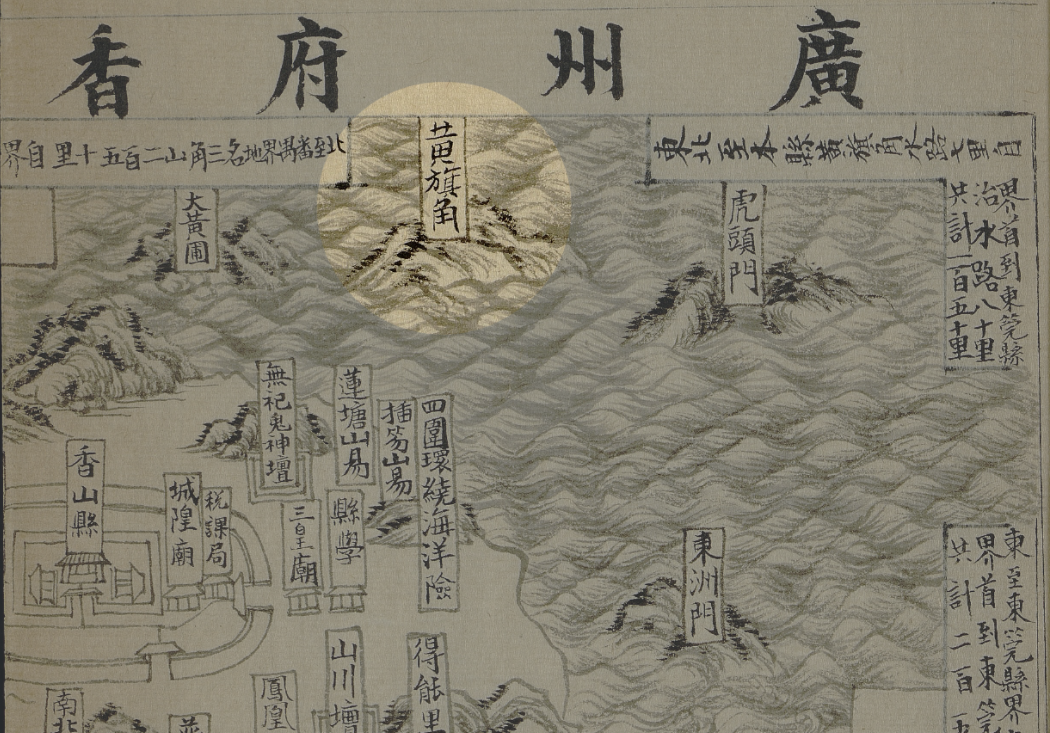 廣州府香
東北至本縣黃旗角水路七里自
界首到東莞縣
治水路八十里
共計一百五十里
北至番禺界地名三角山二百五十里自界
黃旗角
虎頭門
大黃圃
四圍環繞海洋險
蓮塘山昜
無祀鬼神壇
香山縣
城隍廟
稅課局
三皇廟
縣學
東洲門
東至東莞縣界
界首到東莞
共計二百
得能里
山川壇
鳳凰
南北